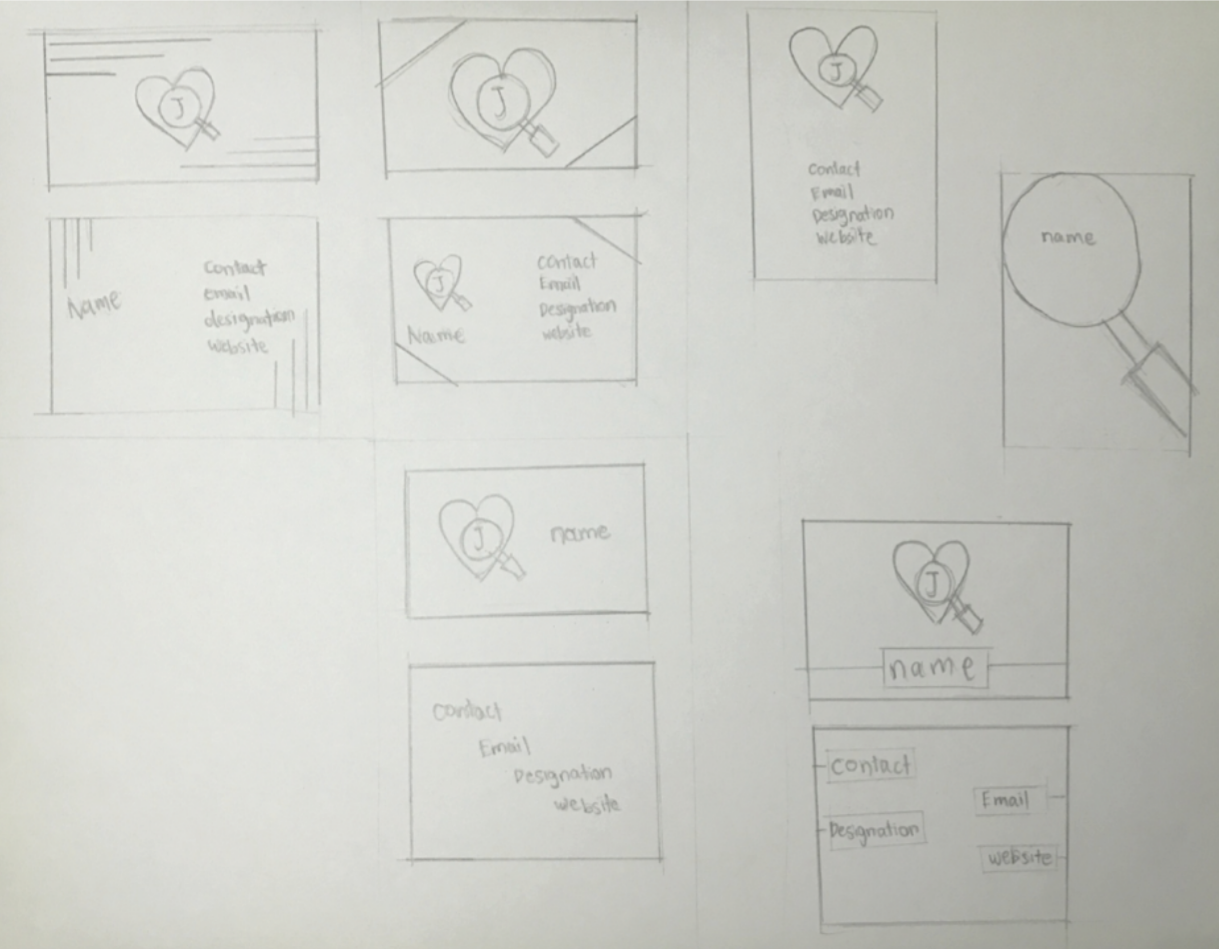 J
Name
Contact
email
designation
website
J
J
Name
Contact
Email
Designation
website
J
Contact
Email
Designation
website
name
J
name
Contact
Email
Designation
website
J
name
Contact
Email
Designation
website